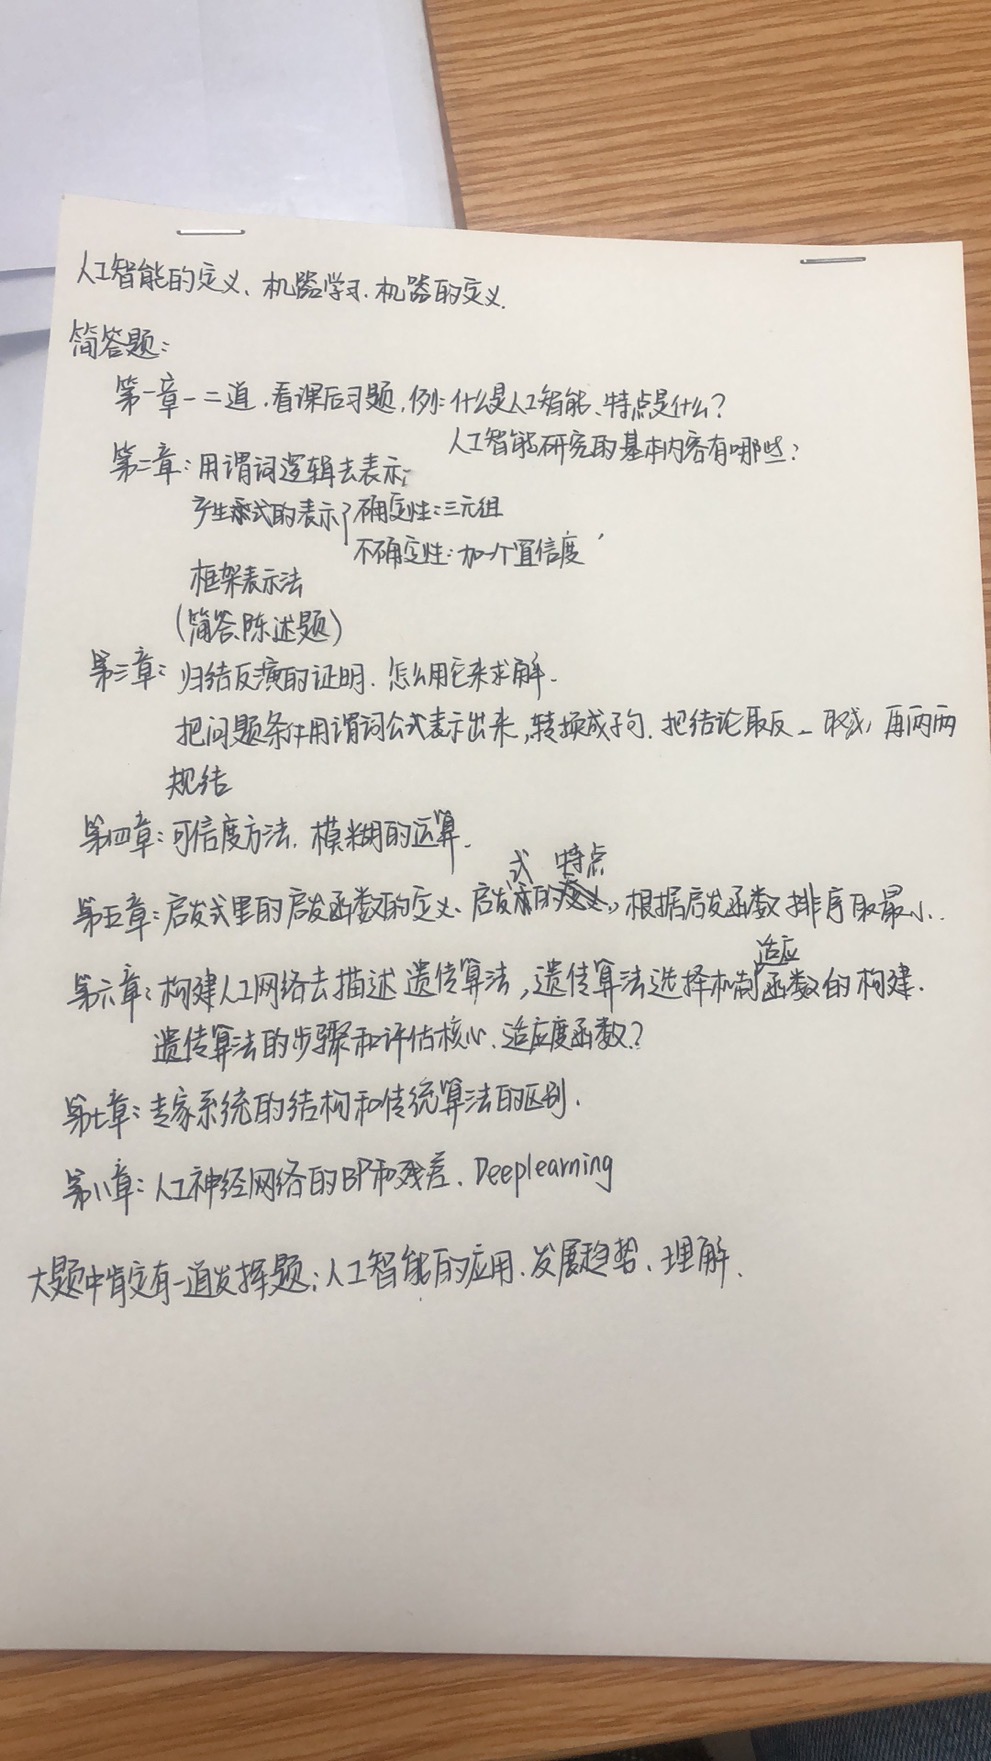 人工智能的定义、机器学习、机器的定义.
简答题:
第一章一二道.看课后习题,例:什么是人工智能、特点是什么?
人工智能研究的基本内容有哪些?
第二章:用谓词逻辑去表示;
产生式的表示{确定性:三元组
不确定性:加一个置信度
框架表示法
(简答、陈述题)
第三章:归结反演的证明.怎么用它来求解.
把问题条件用谓词公式表示出来,转换成子句.把结论取反_取或,再两两
规结
第四章:可信度方法.模糊的运算.
式 特点
第五章:启发式里的启发函数的定义、启发的,根据启发函数排序取最小..
适应
第六章:构建人工网络去描述遗传算法,遗传算法选择机制函数的构建.
遗传算法的步骤和评估核心、适应度函数?
第七章:专家系统的结构和传统算法的区别.
第八章:人工神经网络的BP和残差、Deeplearning
大题中肯定有一道发挥题:人工智能的应用、发展趋势、理解、